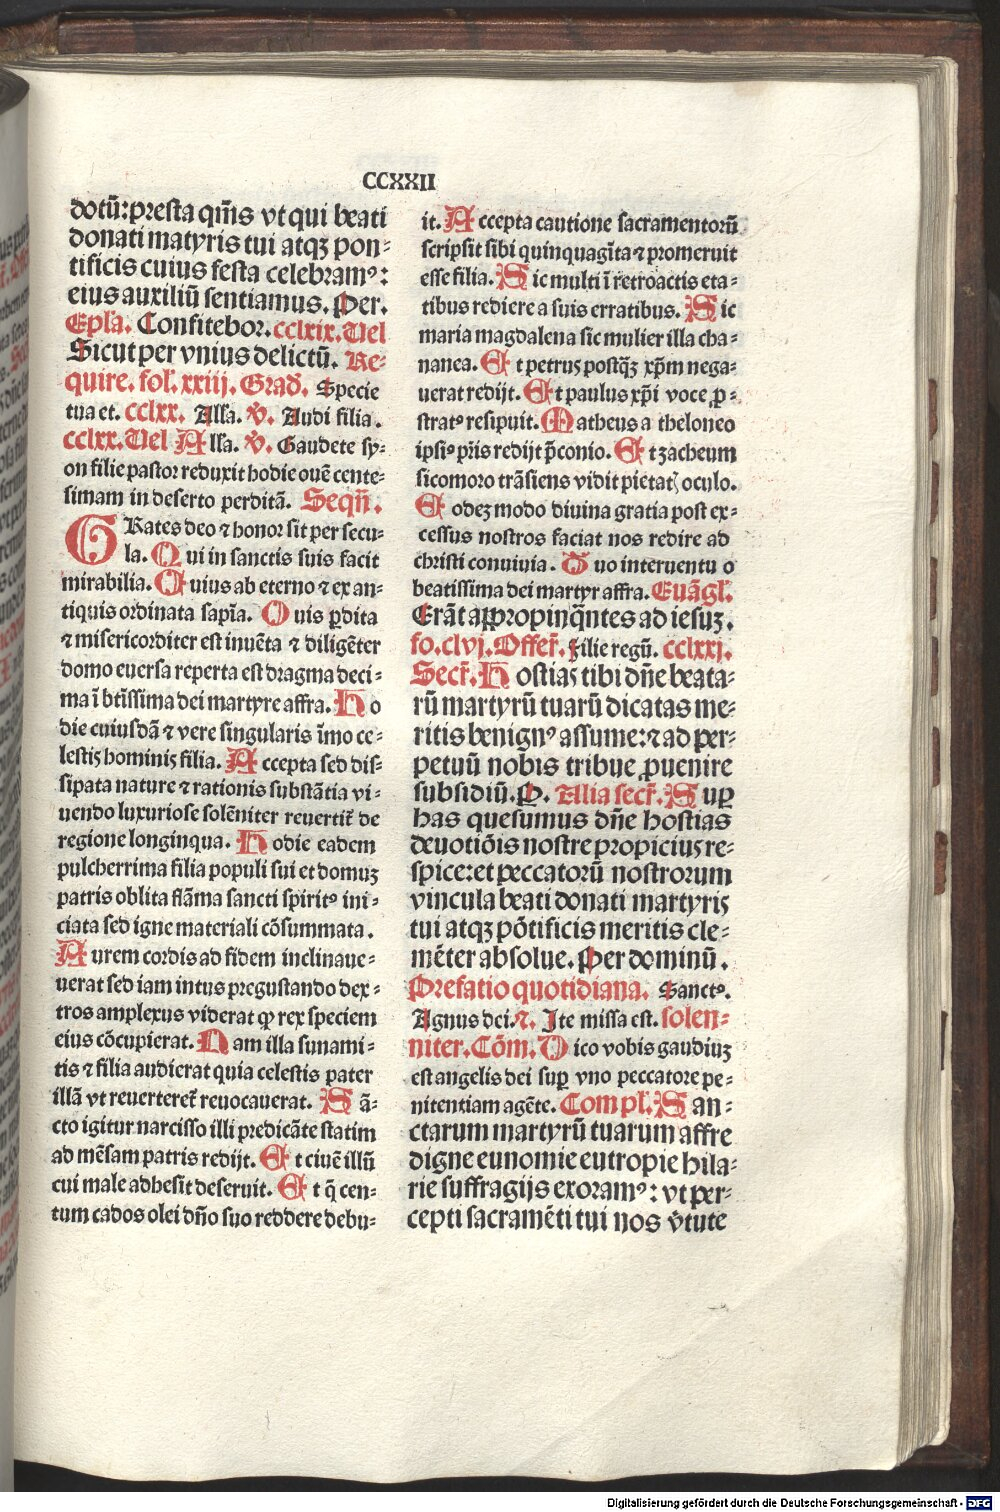 CCXXII
dotū: presta qm̄s vt qui beati
donati matyris tui atqʒ pon⸗
tificis cuius festa celebramꝰ:
eius auxiliū sentiamus. Per.
Epl'a. Confitebor. cclxix. Uel
Sicut per vnius delictū. Re⸗
quire. fol'. xxiij. Grad. Specie
tua et. cclxx. All'a. v̄. Audi filia.
cclxx. Uel All'a. v̄. Gaudete sy⸗
on filie pastor reduxit hodie ouē cente⸗
simam in deserto perditā. Seqn̄.
GRates deo ⁊ honor sit per secu⸗
la. Qui in sanctis suis facit
mirabilia. Cuius ab eterno ⁊ ex an⸗
tiquis ordinata sapīa. Ouis ꝑdita
⁊ misericorditer est inuēta ⁊ diligēter
domo euersa reperta est dragma deci⸗
ma ī btīssima dei martyre affra. Ho
die cuiusdā ⁊ vere singularis īmo ce⸗
lestis hominis filia. Accepta sed dis⸗
sipata nature ⁊ rationis substātia vi⸗
uendo luxuriose solēniter reuertit̄ de
regione longinqua. Hodie eadem
pulcherrima filia populi sui et domuʒ
patris oblita flāma sancti spiritꝰ ini⸗
ciata sed igne materiali cōsummata.
Aurem cordis ad fidem inclinaue⸗
uerat sed iam intus pregustando dex⸗
tros amplexus viderat ꝙ rex speciem
eius cōcupierat. Nam illa sunami⸗
tis ⁊ filia audierat quia celestis pater
illā vt reuerteret̄ reuocauerat. Sā⸗
cto igitur narcisso illi predicāte statim
ad mēsam patris redijt. Et ciuē illū
cui male adhesit deseruit. Et q̄ cen⸗
tum cados olei dn̄o suo reddere debu⸗
it. Accepta cautione sacramentorū
scripsit sibi quinquagīta ⁊ promeruit
esse filia. Sic multi ī retroactis eta⸗
tibus rediere a suis erratibus. Sic
maria magdalena sic mulier illa cha⸗
nanea. Et petrus postq̄ʒ xp̄m nega⸗
uerat redijt. Et paulus xp̄i voce ꝓ⸗
stratꝰ resipuit. Matheus a theloneo
ipsiꝰ pr̄is redijt p̄conio. Et zacheum
sicomoro trāsiens vidit pietatꝭ oculo.
Eodeʒ modo diuina gratia post ex⸗
cessus nostros faciat nos redire ad
christi conuiuia. Tuo interuentu o
beatissima dei martyr affra. Euāgl'.
Erāt appropinq̄ntes ad iesuʒ.
fo. clvj. Offer̄. Filie regū. cclxxj.
Secr̄. Hostias tibi dn̄e beata⸗
rū martyrū tuarū dicatas me⸗
ritis benignꝰ assume: ⁊ ad per⸗
petuū nobis tribue ꝓuenire
subsidiū. P. Alia secr̄. Suꝑ
has quesumus dn̄e hostias
deuotiōis nostre propicius re⸗
spice: et peccatorū nostrorum
vincula beati donati martyris
tui atqʒ pōtificis meritis cle⸗
mēter absolue. Per dominū.
Prefatio quotidiana. Sanctꝰ.
Agnus dei. ⁊. Ite missa est. solen⸗
niter. Cōm. Dico vobis gaudiuʒ
est angelis dei suꝑ vno peccatore pe⸗
nitentiam agēte. Compl'. San⸗
ctarum martyrū tuarum affre
digne eunomie eutropie hila⸗
rie suffragijs exoramꝰ: vt per⸗
cepti sacramēti tui nos v̄tute
Digitalisierung gefördert durch die Deutsche Forschungsgemeinschaft - DFG